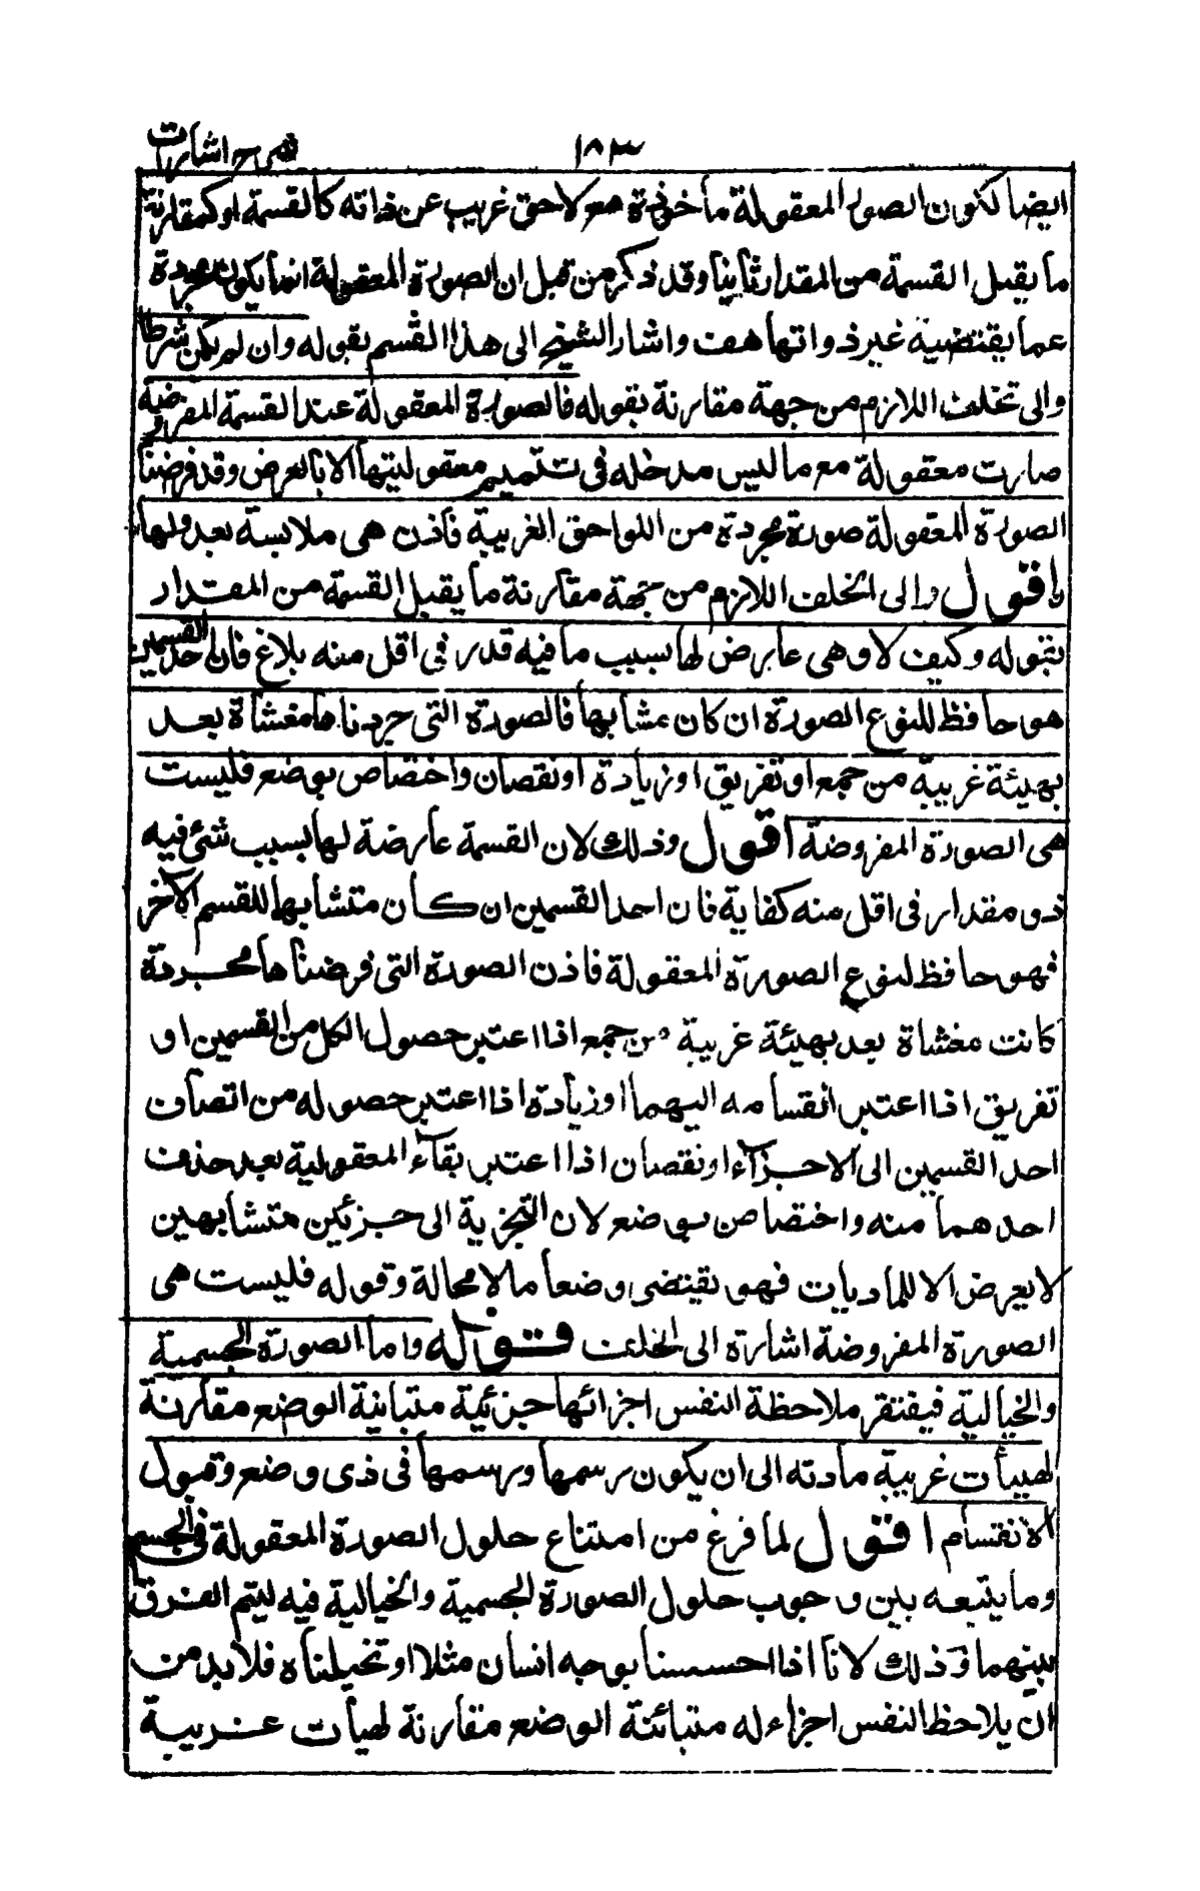 شرح اشارات
١٨٣
ايضا لكون الصور المعقولة ماخوذة مع لاحق غريب عن ذاته كالقسمة او كمقارنة
ما يقبل القسمة من المقدار ثانيا وقد ذكر من قبل ان الصورة المعقولة انما يكون مجردة
عما يقتضيه غير ذواتها هف واشار الشيخ الى هذا القسم بقوله وان لم يكن شرطا
والى تخلف اللازم من جهة مقارنة بقوله فالصورة المعقولة عند القسمة المفروضة
صارت معقولة مع ما ليس مدخله فى تتميم معقوليتها الا بالعرض وقد فرضنا
الصورة المعقولة صورة مجردة من اللواحق الغريبة فاذن هى ملابسة بعد ولها
اقول والى الخلف اللازم من جهة مقارنة ما يقبل القسمة من المقدار
بقوله وكيف لا وهى عارض لها بسبب ما فيه قدر فى اقل منه بلاغ فان احد القسمين
هو حافظ للنوع الصورة ان كان مشابها فالصورة التى جردناها مغشاة بعد
بهيئة غريبة من جمع او تفريق او زيادة او نقصان واختصاص بوضع فليست
هى الصورة المفروضة اقول وذلك لان القسمة عارضة لها بسبب شئ فيه
ذو مقدار فى اقل منه كفاية فان احد القسمين ان كان متشابها للقسم الآخر
فهو حافظ لنوع الصورة المعقولة فاذن الصورة التى فرضناها مجردة
كانت مغشاة بعد بهيئة غريبة من جمع اذا اعتبر حصول الكل من القسمين او
تفريق اذا اعتبر انقسامه اليهما او زيادة اذا اعتبر حصوله من اتصاف
احد القسمين الى الاجزاء او نقصان اذا اعتبر بقاء المعقولية بعد حذف
احدهما منه واختصاص بوضع لان التجزية الى جزئين متشابهين
لا يعرض الا للماديات فهو يقتضى وضعا ما لا محالة وقوله فليست هى
الصورة المفروضة اشارة الى الخلف قوله واما الصورة الجسمية
والخيالية فيفتقر ملاحظة النفس اجزائها جزئية متباينة الوضع مقارنة
لهيئات غريبة مادته الى ان يكون رسمها ورسمها فى ذى وضع وقبول
الانقسام اقول لما فرغ من امتناع حلول الصورة المعقولة فى الجسم
وما يتبعه بين وجوب حلول الصورة الجسمية والخيالية فيه ليتم الفرق
بينهما وذلك لانا اذا احسسنا بوجه انسان مثلا او تخيلناه فلا بد من
ان يلاحظ النفس اجزاء له متبائنة الوضع مقارنة لهيأت غريبة